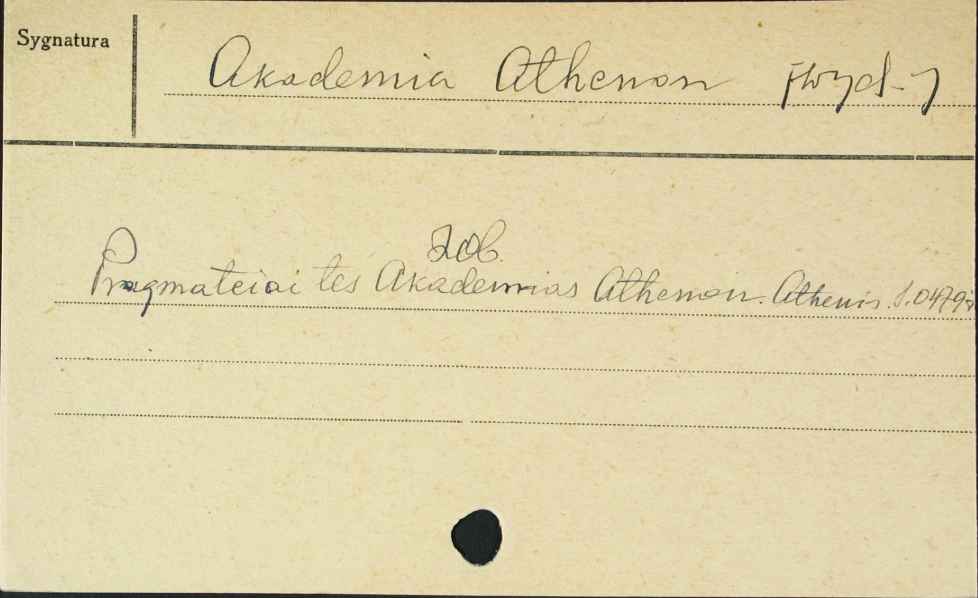 Sygnatura
Akademia Athenon [wyd.]
zob.
Pragmateiai tes Akademias Athenon. Athenis. S.0479